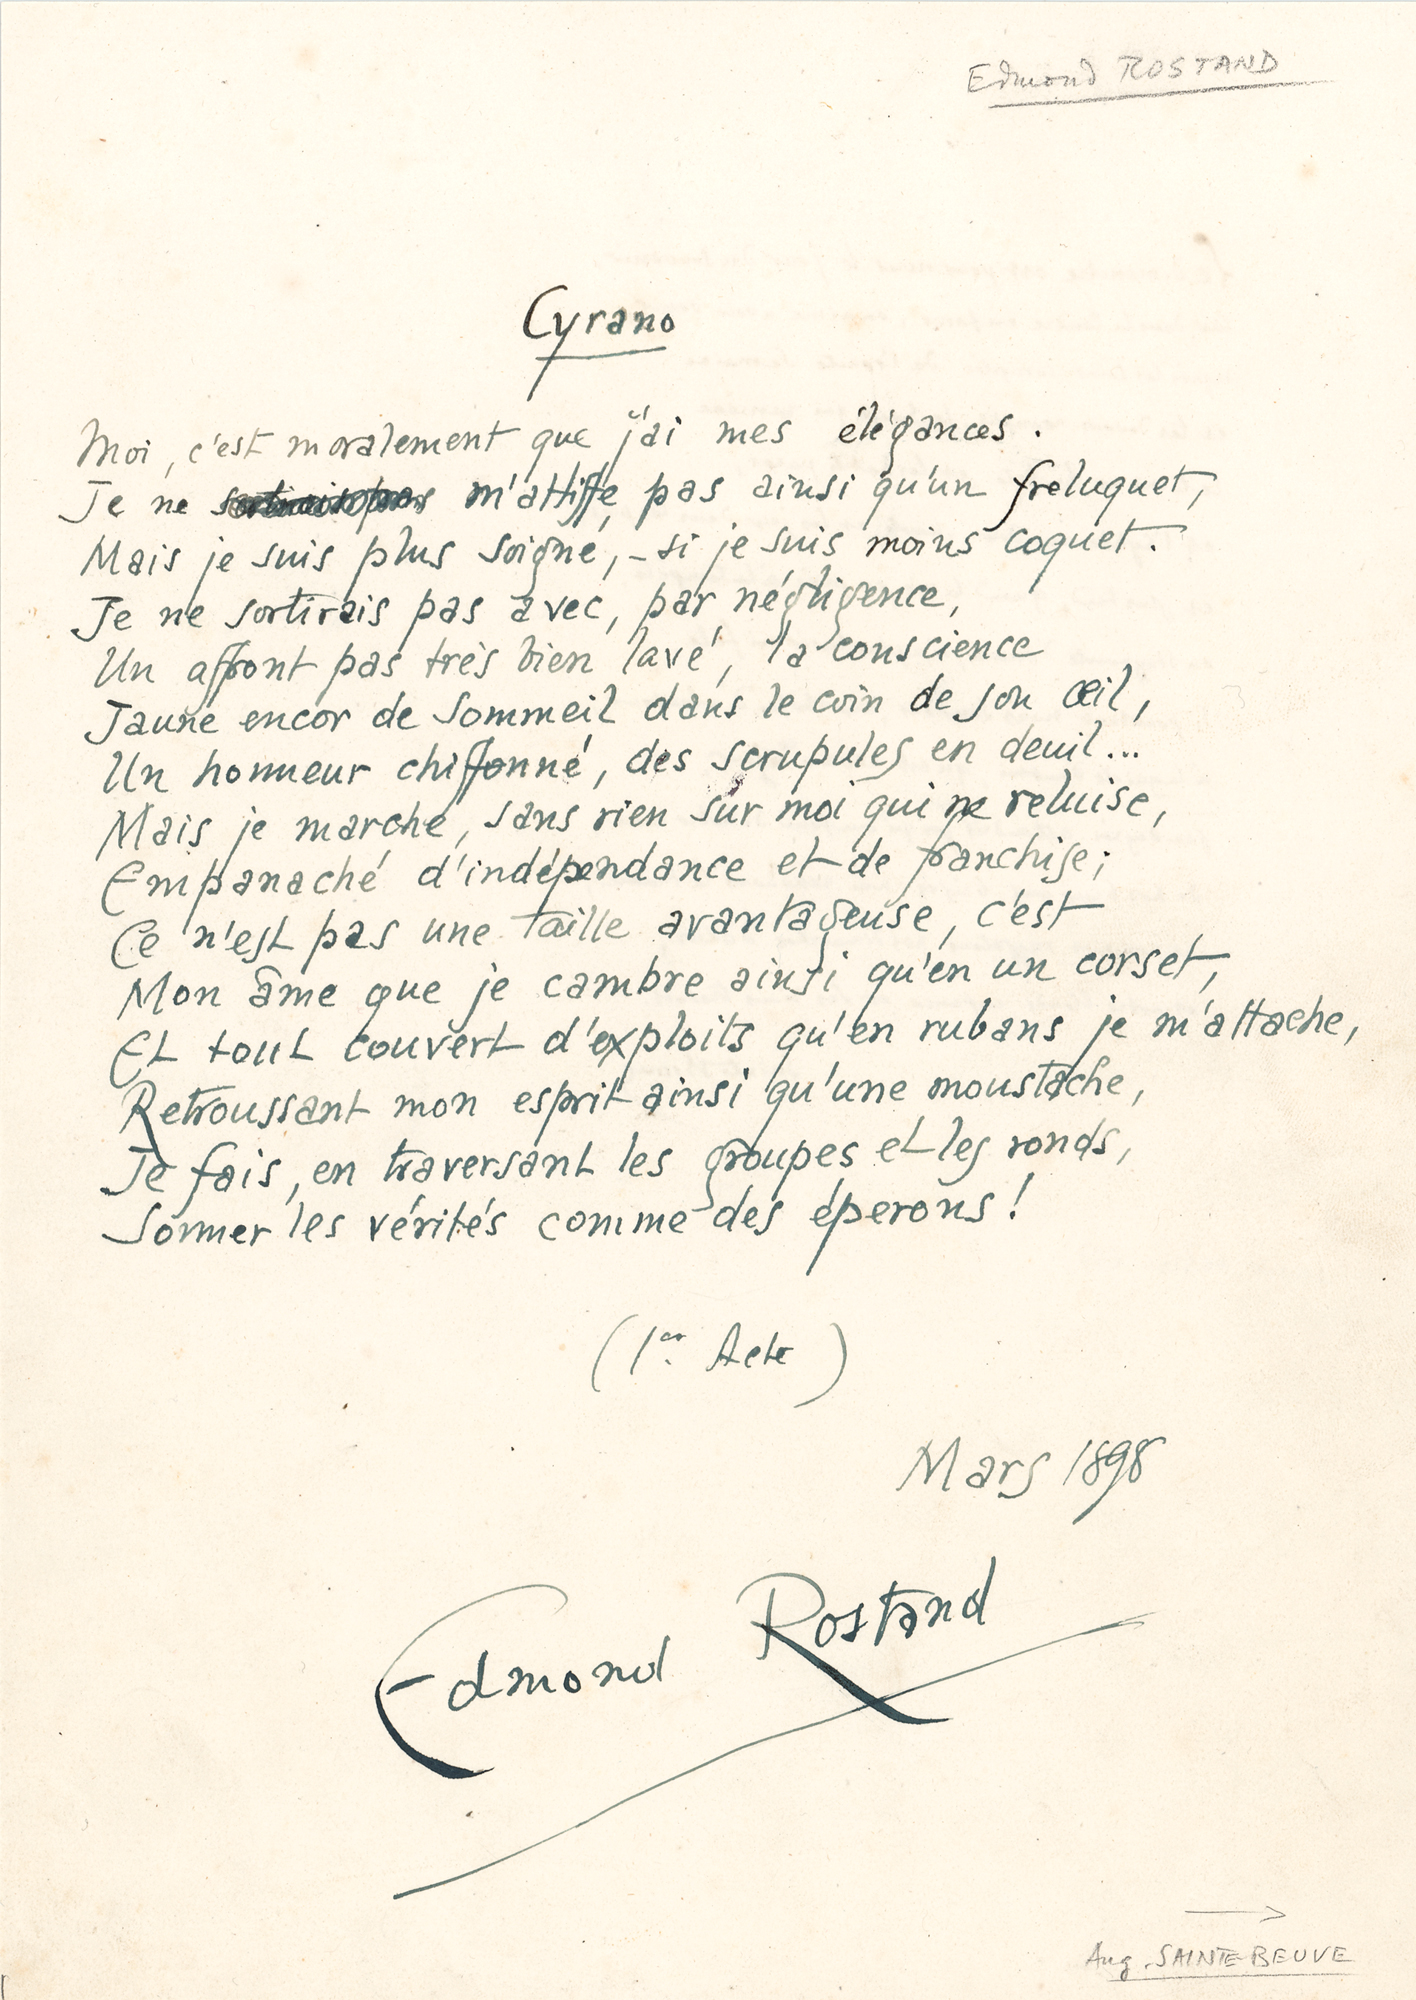 Edmond ROSTAND
Cyrano
Moi, c'est moralement que j'ai mes élégances.
Je ne m'attiffe pas ainsi qu'un freluquet,
Mais je suis plus soigné, – si je suis moins coquet.
Je ne sortirais pas avec, par négligence,
Un affront pas très bien lavé, la conscience
Jaune encor de sommeil dans le coin de son œil,
Un honneur chiffonné, des scrupules en deuil...
Mais je marche, sans rien sur moi qui ne reluise,
Empanaché d'indépendance et de franchise;
Ce n'est pas une taille avantageuse, c'est
Mon âme que je cambre ainsi qu'en un corset,
Et tout couvert d'exploits qu'en rubans je m'attache,
Retroussant mon esprit ainsi qu'une moustache,
Je fais, en traversant les groupes et les ronds,
Sonner les vérités comme des éperons!
(1er Acte)
Mars 1898
Edmond Rostand
Aug. SAINTE-BEUVE